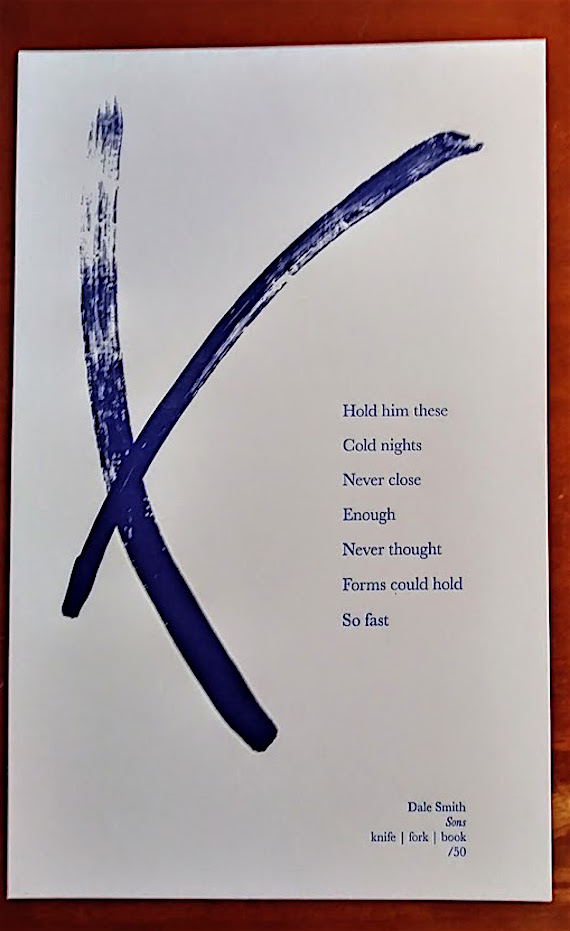 Hold him these
Cold nights
Never close
Enough
Never thought
Forms could hold
So fast
Dale Smith
Sons
knife | fork | book
/50